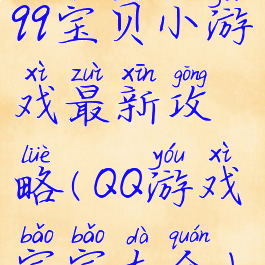 99宝贝小游
xì zuì xīn gōng
戏最新攻
lüè yóu xì
略(QQ游戏
bǎo bǎo dà quán
宝宝大全)